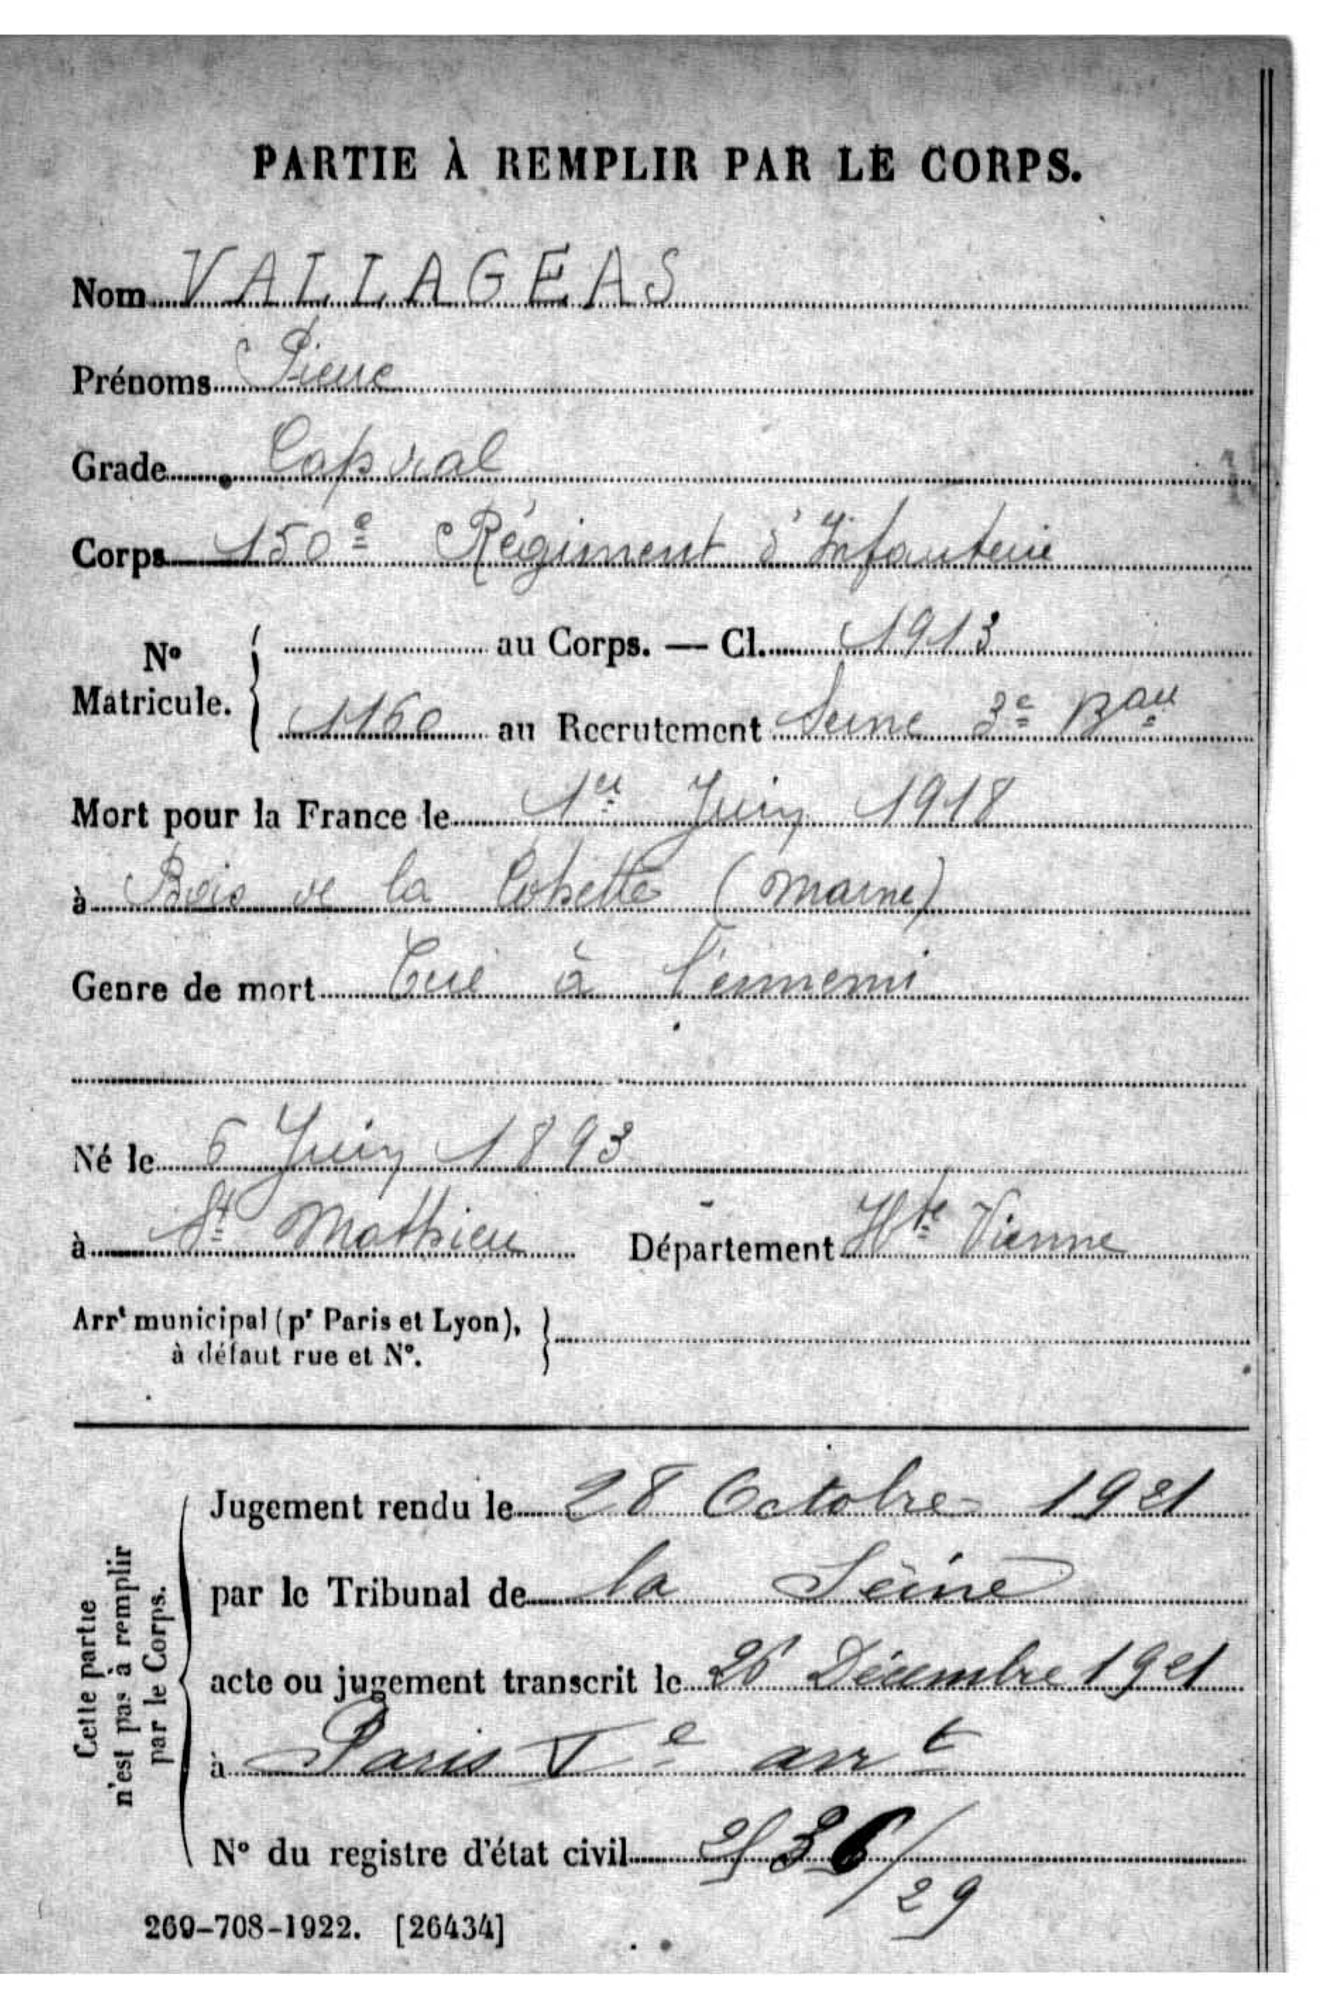 PARTIE À REMPLIR PAR LE CORPS.
Nom VALLAGEAS
Prénoms Pierre
Grade Caporal
Corps 150e Régiment d'Infanterie
N° Matricule. au Corps. — Cl. 1913
1160 au Recrutement Seine 3e Bau
Mort pour la France le 1er Juin 1918
à Bois de la Cohette (Marne)
Genre de mort Tué à l'ennemi
Né le 6 Juin 1893
à St Mathieu Département Hte Vienne
Arrt municipal (pr Paris et Lyon),
à défaut rue et N°.
Cette partie n'est pas à remplir par le Corps.
Jugement rendu le 28 Octobre 1921
par le Tribunal de la Seine
acte ou jugement transcrit le 26 Décembre 1921
à Paris Ve arrt
N° du registre d'état civil 36/29
269-708-1922. [26434]